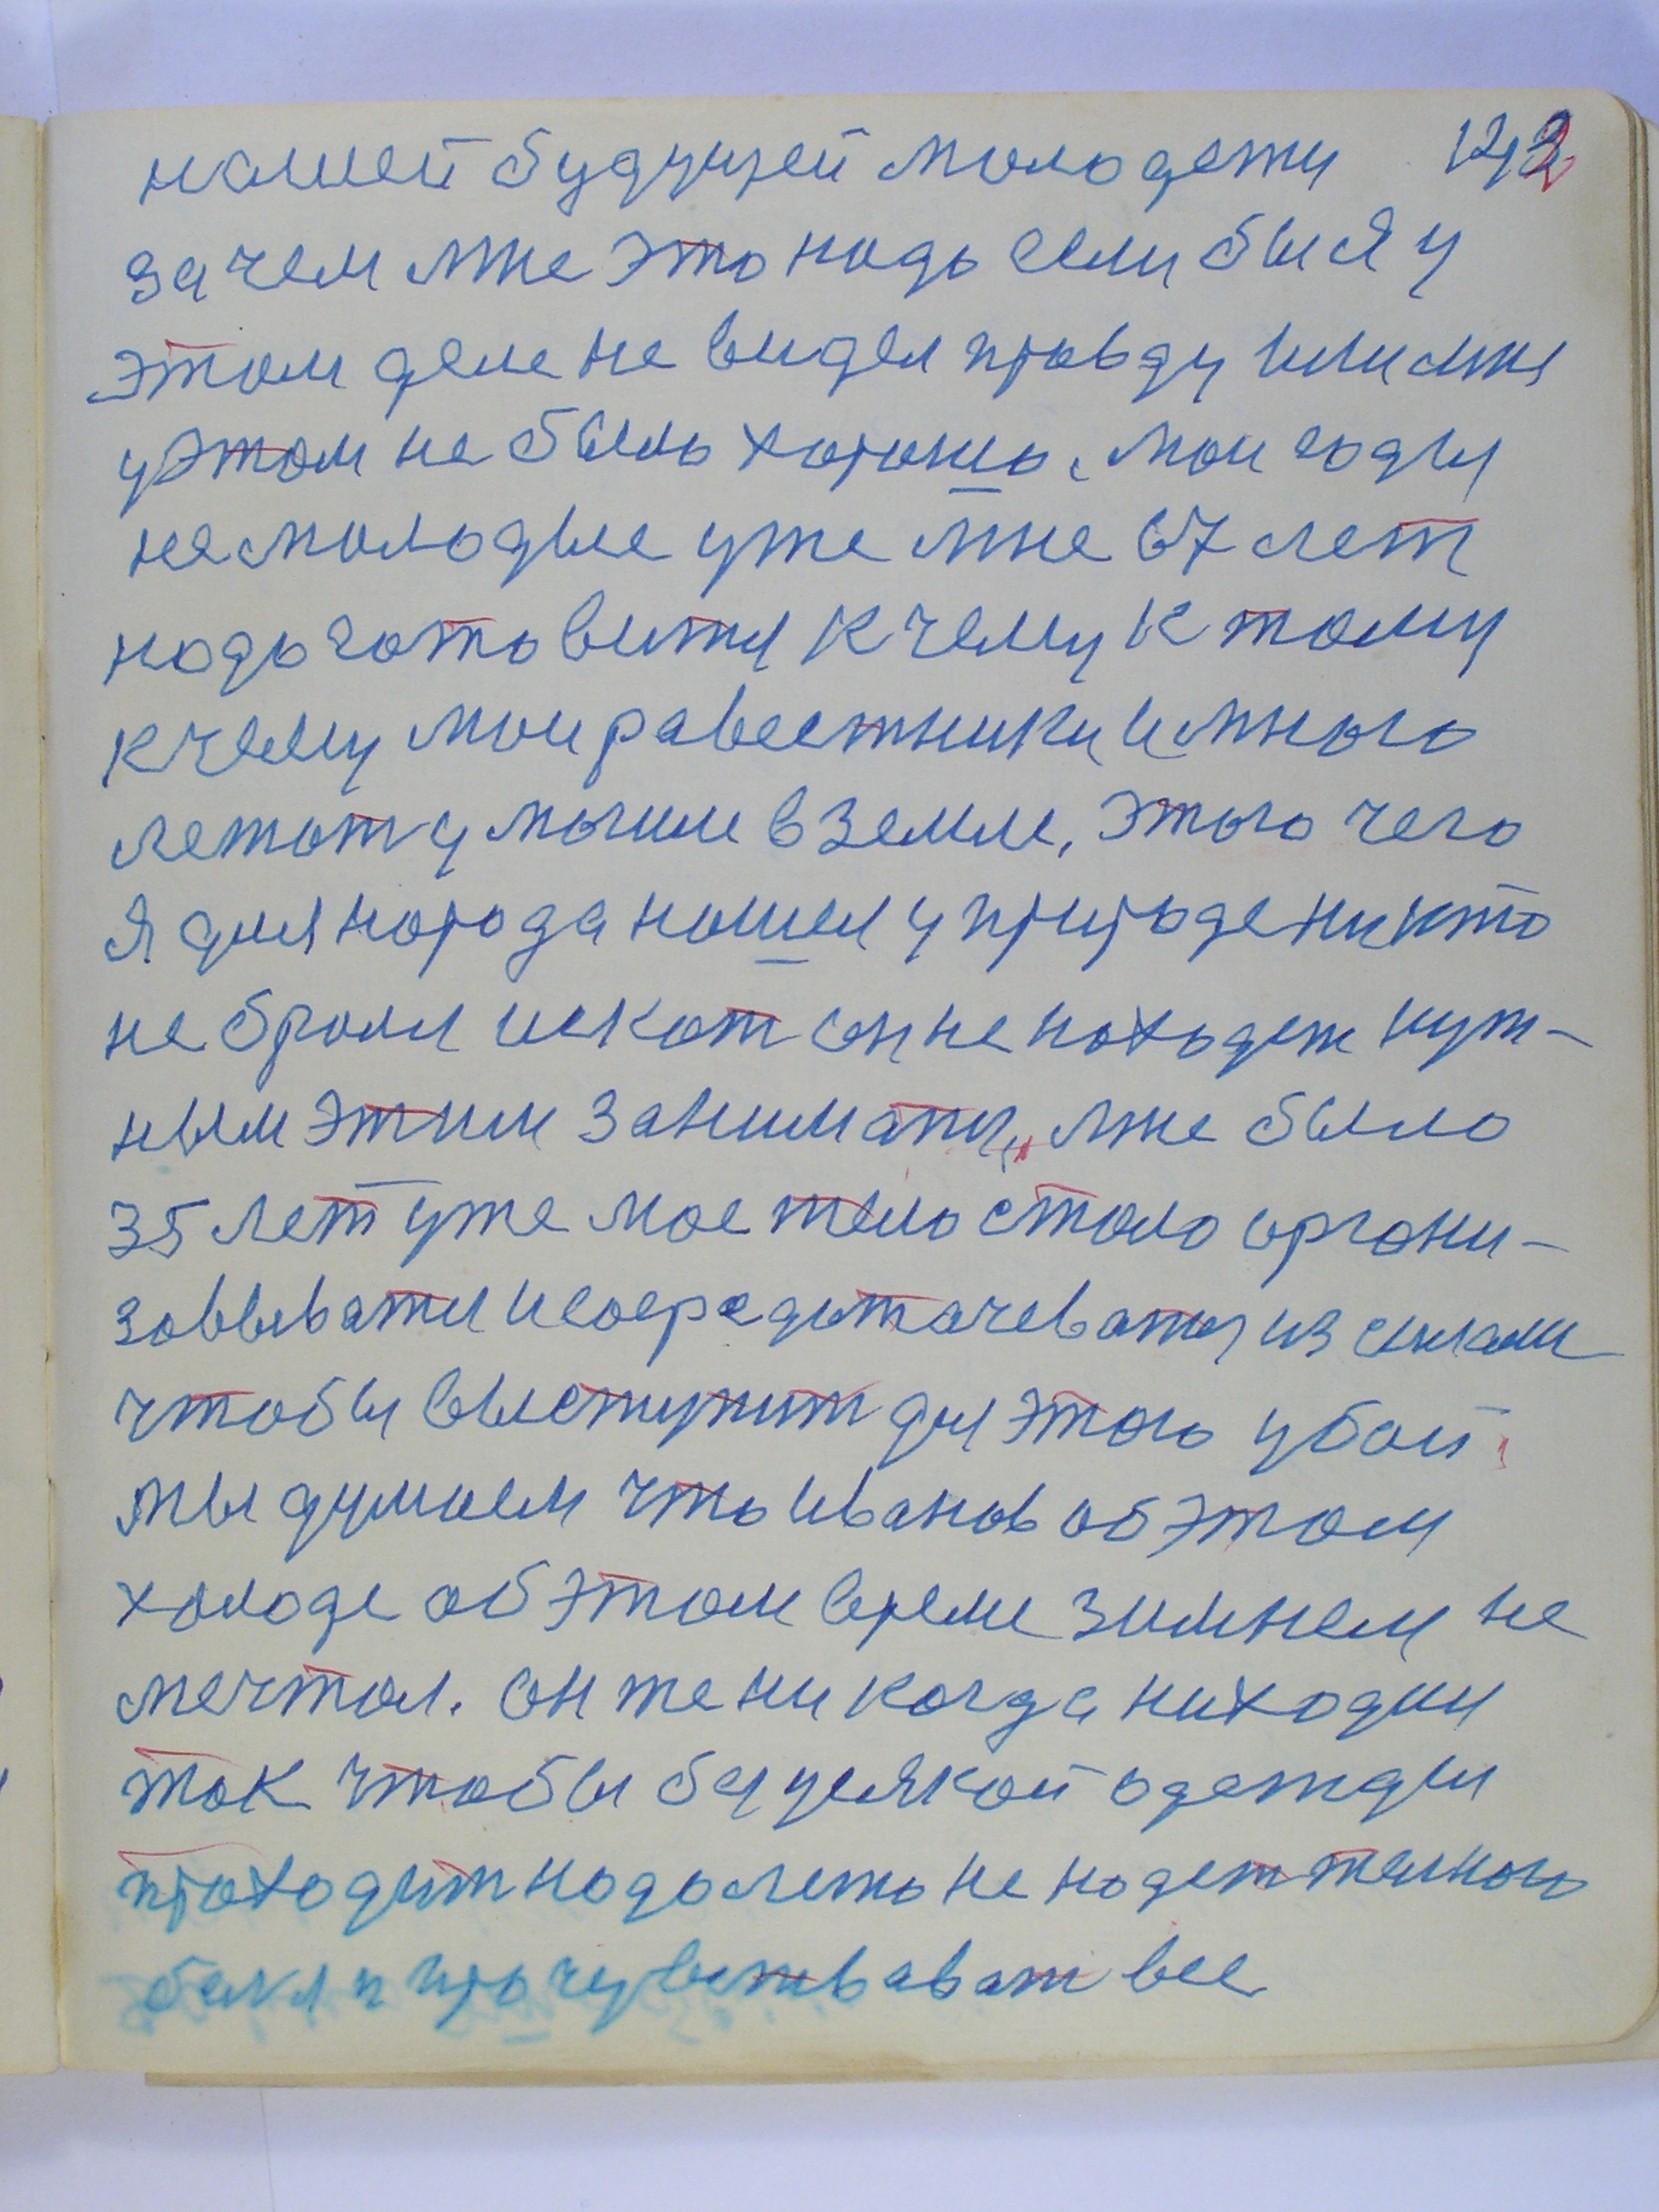 нашей будущей молодежи
зачем мне это надо если бы я у
этом деле не видел правду или мне
у этом не было хорошо. мои годы
не молодые уже мне 67 лет
надо готовится к чему к тому
к чему мои равестники и много
лежат у могиле в земле, этого чего
я для народа нашел у природе никто
не брался искат он не находеж нуж-
ным этим заниматся, мне было
35 лет уже мое тело стало органи-
зоввыватся и соередитачеватся из силами
чтобы выступит для этого у бой
мы думаем что иванов об этом
холоде об этом време зимнем не
мечтал. он же никогда ни ходил
так чтобы без усякой одежды
проходит надо лето не надет телного
беля и прочувствават все